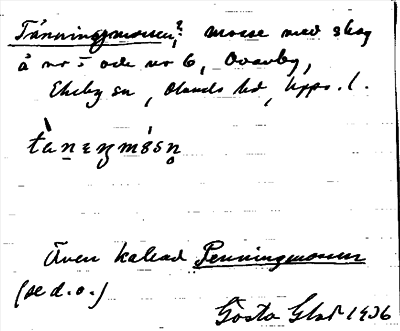 Tånningmossen,? mosse med skog
å nr 5 och nr 6, Ovanby,
Ekeby sn, Olands hd, Upps. l.
tànεŋmɔ́sn̥
Även kallad Penningmossen
(se d.o.)
Gösta 1936